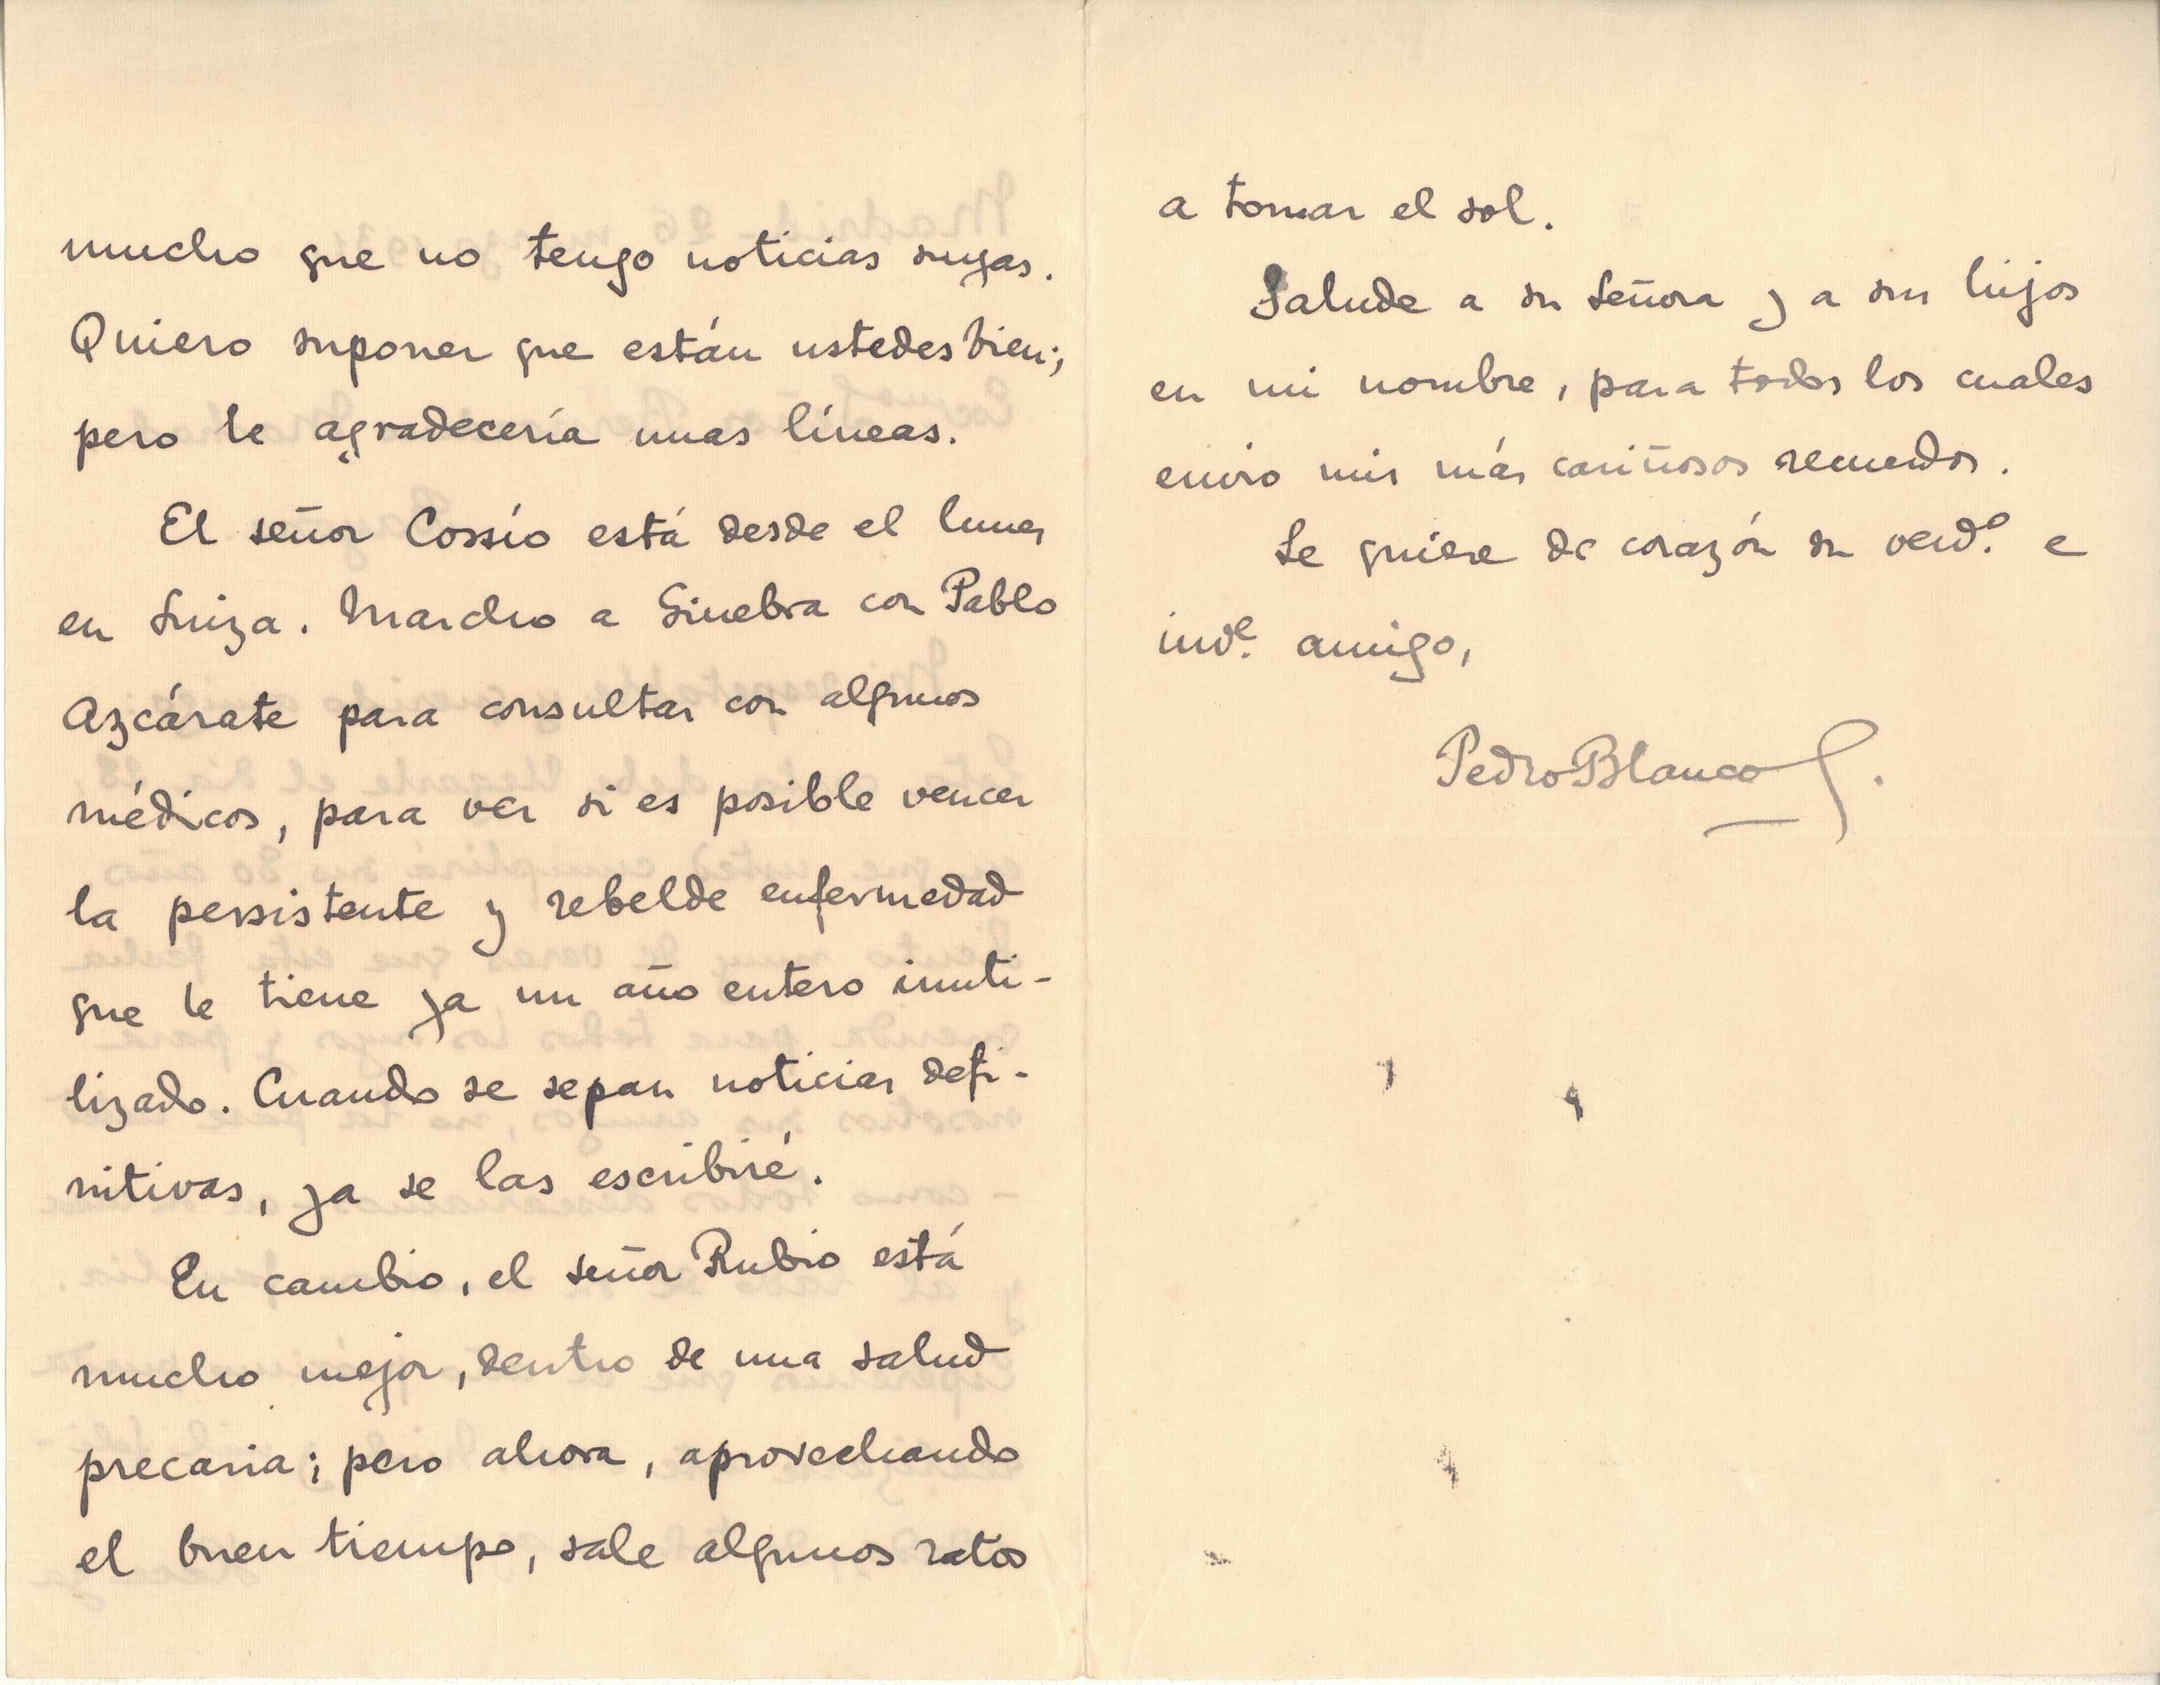 mucho que no tengo noticias suyas.
Quiero suponer que están ustedes bien;
pero le agradecería unas líneas.
El señor Cossío está desde el lunes
en Suiza. Marchó a Ginebra con Pablo
Azcárate para consultar con algunos
médicos, para ver si es posible vencer
la persistente y rebelde enfermedad
que le tiene ya un año entero inuti-
lizado. Cuando se sepan noticias defi-
nitivas, ya se las escribiré.
En cambio, el señor Rubio está
mucho mejor, dentro de una salud
precaria; pero ahora, aprovechando
el buen tiempo, sale algunos ratos
a tomar el sol.
Salude a su señora y a sus hijos
en mi nombre, para todos los cuales
envio mis más cariñosos recuerdos.
Le quiere de corazón su verd.º e
inv.e amigo,
Pedro Blanco S.